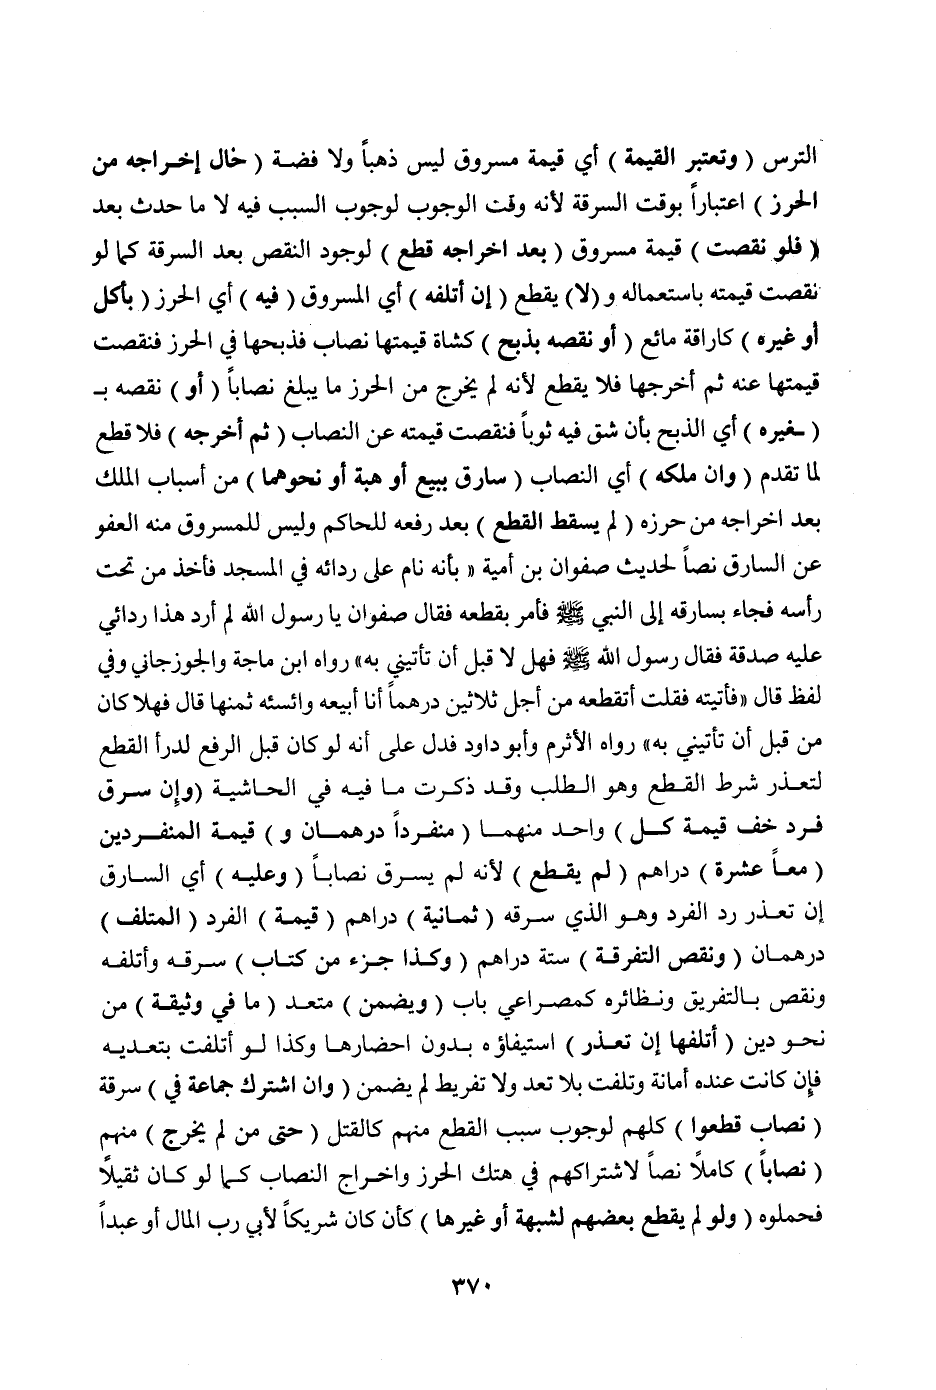 الترس ( وتعتبر القيمة ) أي قيمة مسروق ليس ذهباً ولا فضة ( حال إخراجه من
الحرز ) اعتباراً بوقت السرقة لأنه وقت الوجوب لوجوب السبب فيه لا ما حدث بعد
( فلو نقصت ) قيمة مسروق ( بعد اخراجه قطع ) لوجود النقص بعد السرقة كما لو
نقصت قيمته باستعماله و (لا) يقطع ( إن أتلفه ) أي المسروق ( فيه ) أي الحرز ( بأكل
أو غيره ) كاراقة مائع ( أو نقصه بذبح ) كشاة قيمتها نصاب فذبحها في الحرز فنقصت
قيمتها عنه ثم أخرجها فلا يقطع لأنه لم يخرج من الحرز ما يبلغ نصاباً ( أو ) نقصه بـ
( ـغيره ) أي الذبح بأن شق فيه ثوباً فنقصت قيمته عن النصاب ( ثم أخرجه ) فلا قطع
لما تقدم ( وان ملكه ) أي النصاب ( سارق ببيع أو هبة أو نحوهما ) من أسباب الملك
بعد اخراجه من حرزه ( لم يسقط القطع ) بعد رفعه للحاكم وليس للمسروق منه العفو
عن السارق نصاً لحديث صفوان بن أمية « بأنه نام على ردائه في المسجد فأخذ من تحت
رأسه فجاء بسارقه إلى النبي ﷺ فأمر بقطعه فقال صفوان يا رسول الله لم أرد هذا ردائي
عليه صدقة فقال رسول الله ﷺ فهل لا قبل أن تأتيني به» رواه ابن ماجة والجوزجاني وفي
لفظ قال «فأتيته فقلت أتقطعه من أجل ثلاثين درهماً أنا أبيعه وانسئه ثمنها قال فهلا كان
من قبل أن تأتيني به» رواه الأثرم وأبو داود فدل على أنه لو كان قبل الرفع لدرأ القطع
لتعذر شرط القطع وهو الطلب وقد ذكرت ما فيه في الحاشية (وإن سرق
فرد خف قيمة كل ) واحد منهما ( منفرداً درهمان و ) قيمة المنفردين
( معاً عشرة ) دراهم ( لم يقطع ) لأنه لم يسرق نصاباً ( وعليه ) أي السارق
إن تعذر رد الفرد وهو الذي سرقه ( ثمانية ) دراهم ( قيمة ) الفرد ( المتلف )
درهمان ( ونقص التفرقة ) ستة دراهم ( وكذا جزء من كتاب ) سرقه وأتلفه
ونقص بالتفريق ونظائره كمصراعي باب ( ويضمن ) متعد ( ما في وثيقة ) من
نحو دين ( أتلفها إن تعذر ) استيفاؤه بدون احضارها وكذا لو أتلفت بتعديه
فإن كانت عنده أمانة وتلفت بلا تعد ولا تفريط لم يضمن ( وان اشترك جماعة في ) سرقة
( نصاب قطعوا ) كلهم لوجوب سبب القطع منهم كالقتل ( حتى من لم يخرج ) منهم
( نصاباً ) كاملاً نصاً لاشتراكهم في هتك الحرز واخراج النصاب كما لو كان ثقيلاً
فحملوه ( ولو لم يقطع بعضهم لشبهة أو غيرها ) كأن كان شريكاً لأبي رب المال أو عبداً
٣٧٠